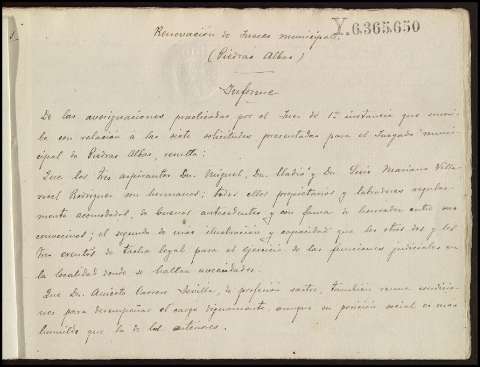 Y.6.365.650
Renovación de Jueces municipales.
(Piedras Albas)
Informe
De las averiguaciones practicadas por el Juez de 1ª instancia que suscri-
be con relación a las siete solicitudes presentadas para el Juzgado muni-
cipal de Piedras Albas, resulta:
Que los tres aspirantes Dn. Miguel, Dn. Eladio y Dn. Luis Mariano Villa-
rroel Rodríguez son hermanos; todos ellos propietarios y labradores regular-
mente acomodados, de buenos antecedentes y con fama de honrados entre sus
convecinos; el segundo de más ilustración y capacidad que los otros dos y los
tres exentos de tacha legal para el ejercicio de las funciones judiciales en
la localidad donde se hallan avecindados.
Que Dn. Aniceto Sevilla, de profesión sastre, también reune condicio-
nes para desempeñar el cargo dignamente, aunque su posición social es mas
humilde que la de los anteriores.